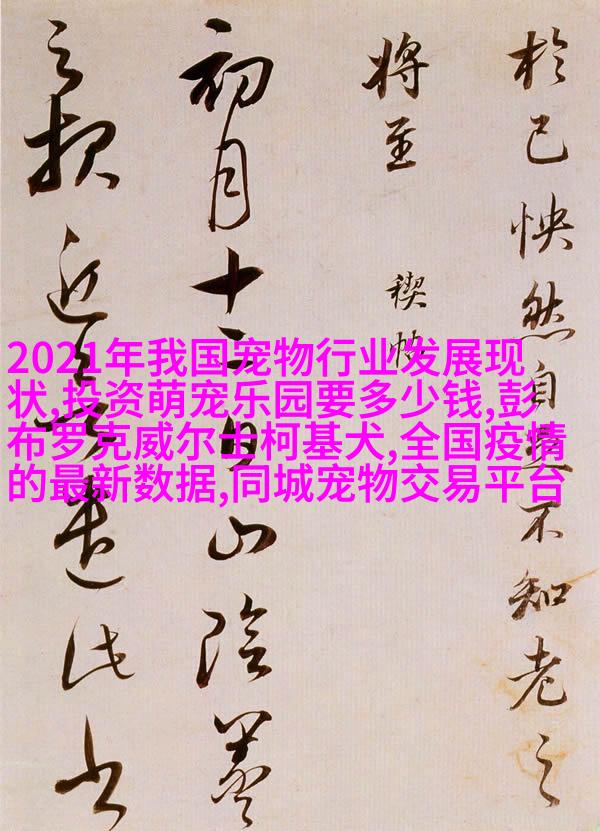 2021年我国宠物行业发展现
状,投资萌宠乐园要多少钱,彭
布罗克威尔士柯基犬,全国疫情
的最新数据,同城宠物交易平台
於已怏然自不知老之
將至
禊帖
初月十二日山陰羲
之報近遣此書